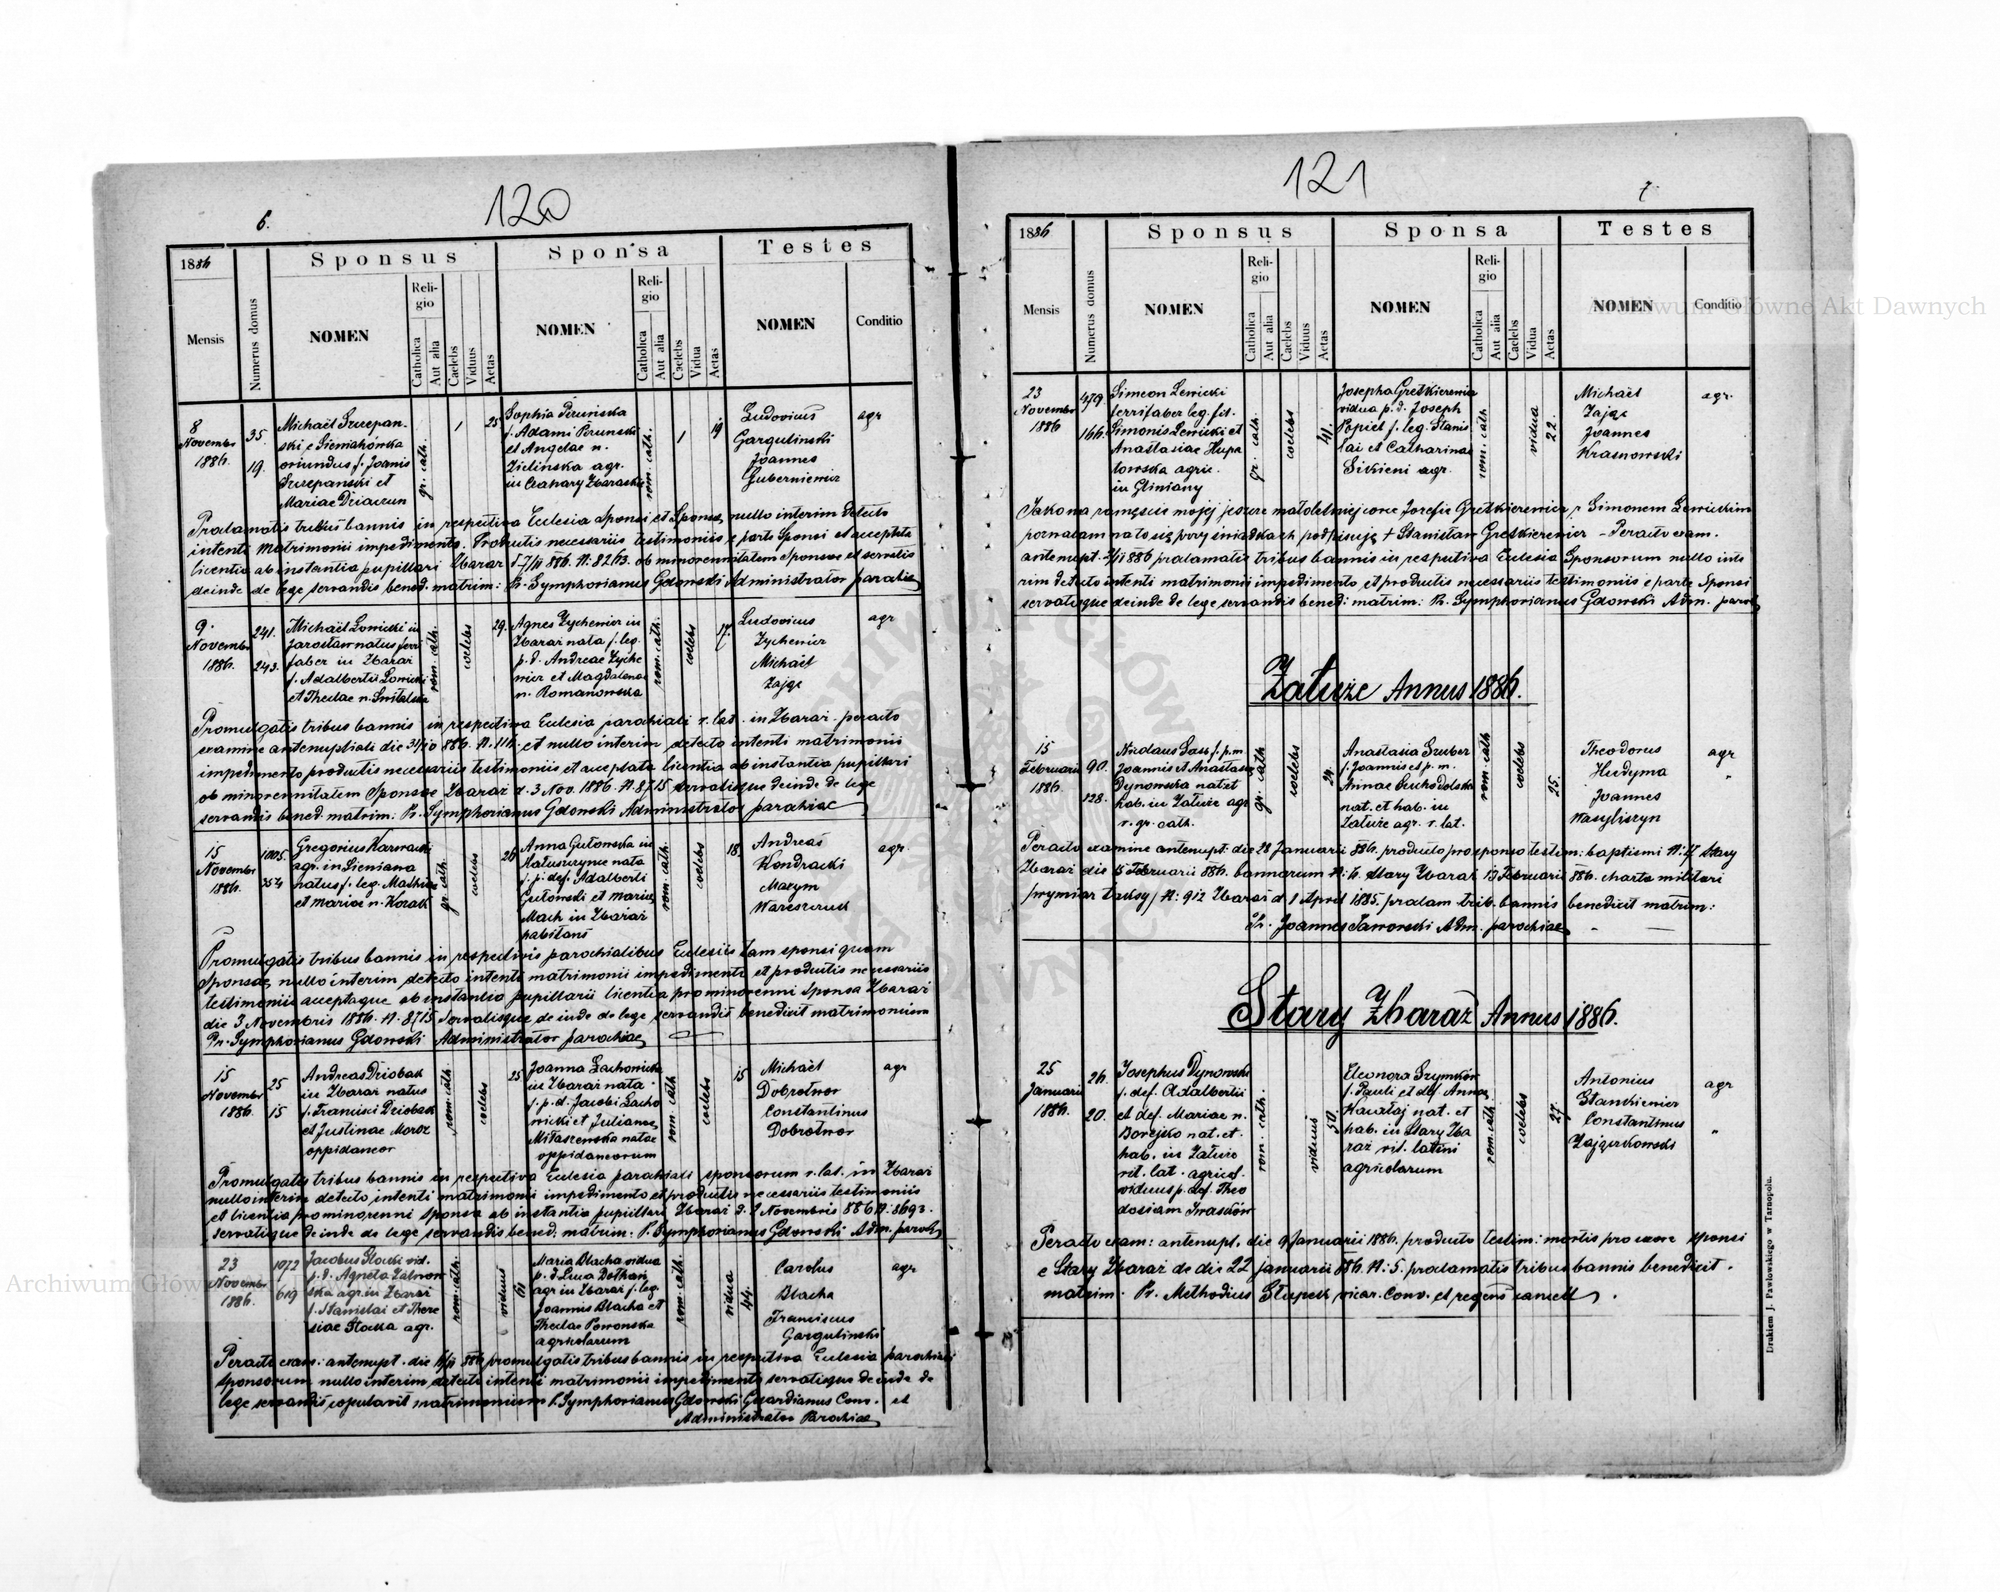 120
6.
1886
Sponsus
Sponsa
Testes
Mensis
Numerus domus
NOMEN
Religio
Catholica
Aut alia
Caelebs
Viduus
Aetas
NOMEN
Religio
Catholica
Aut alia
Caelebs
Vidua
Aetas
NOMEN
Conditio
8
Novembr
1886.
35.
19.
Michaël Szczepan-
ski e Sieniahówka
oriundus f. Joanis
Szczepanski et
Mariae
gr. cath.
1
25
Sophia
f. Adami
et Angelae n.
Zielinska agr.
in
rom. cath.
1
19
Ludovicus
Gargulinski
Joannes
Guberniewicz
agr
Proclamatis tribus bannis in respectiva Ecclesia Sponsi et Sponsae, nullo interim detecto
intenti matrimonii impedimento. Productis necessariis testimoniis e parte Sponsi et acceptata
licentia ab instantia pupillari Zbaraż d. 7/11 886. N. 8213. ob minorennitatem Sponsae et servatis
deinde de lege servandis bened. matrim: Pr. Symphorianus Gdowski Administrator parochiae
9.
Novembr
1886.
241.
243.
Michaël Łowicki in
Jarosław natus ferri
faber in Zbaraż
f. Adalberti Łowicki
et Theclae n.
rom. cath.
coelebs
29.
Agnes Zychewicz in
Zbaraż nata f. leg.
p. d. Andreae Zyche
wicz et Magdalenae
n. Romanowska
rom. cath.
coelebs
17.
Ludovicus
Zychewicz
Michaël
Zając
agr
Promulgatis tribus bannis in respectiva Ecclesia parochiali r. lat. in Zbaraż. peracto
examine antenuptiali die 31/10 886. N. 116. et nullo interim detecto intenti matrimonii
impedimento productis necessariis testimoniis et acceptata licentia ab instantia pupillari
ob minorennitatem Sponsae Zbaraż d. 3 Nov. 1886. N. 8715 servatisque deinde de lege
servandis bened. matrim: Pr. Symphorianus Gdowski Administrator parochiae
15
Novembr
1886.
1005.
354
Gregorius Karwacki
agr. in Sieniawa
natus f. leg. Mathiae
et Mariae n. Kozak
gr. cath.
coelebs
26
Anna Gutowska in
nata
f. p. def. Adalberti
Gutowski et Mariae
Mach in Zbaraż
habitans
rom. cath.
coelebs
18.
Andreas
Kondracki
Maxym
agr.
Promulgatis tribus bannis in respectivis parochialibus Ecclesiis tam sponsi quam
Sponsae, nullo interim detecto intenti matrimonii impedimento et productis necessariis
testimoniis acceptaque ab instantia pupillari licentia pro minorenni Sponsa Zbaraż
die 3 Novembris 1886. N. 8715 servatisque deinde de lege servandis benedixit matrimonium
Pr. Symphorianus Gdowski Administrator parochiae
15
Novembr
1886.
25
15
Andreas Dziobak
in Zbaraż natus
f. Francisci Dziobak
et Justinae Moroz
oppidaneor
rom. cath
coelebs
25
Joanna Lachowicka
in Zbaraż nata
f. p. d. Jacobi Lacho
wicki et Julianae
Mitaszewska natae
oppidaneorum
rom. cath
coelebs
15
Michaël
Dobrotwor
Constantinus
Dobrotwor
agr
Promulgatis tribus bannis in respectiva Ecclesia parochiali sponsorum r. lat. in Zbaraż
nullo interim detecto intenti matrimonii impedimento et productis necessariis testimoniis
et licentia pro minorenni sponsa ab instantia pupillari Zbaraż d. 2 Novembris 886 N. 8693.
servatisque deinde de lege servandis bened. matrim: P. Symphorianus Gdowski Adm. paroch
23
Novembr
1886.
1072
619
Jacobus Słocki vid.
p. d. Agneta
ska agr. in Zbaraż
f. Stanislai et There
siae Słocka agr.
rom. cath.
viduus
61
Maria Blacha vidua
p. d. Luca Dolhan
agr in Zbaraż f. leg.
Joannis Blacha et
Theclae Powonska
agricolarum
rom. cath.
vidua
44.
Carolus
Blacha
Franciscus
Gargulinski
agr
Peracto exam: antenupt. die 886 promulgatis tribus bannis in respectiva Ecclesia parochiali
sponsorum nullo interim detecto intenti matrimonii impedimento servatisque deinde de
lege servandis copulavit matrimonium P. Symphorianus Gdowski Guardianus Conv. et
Administrator Parochiae
121
7.
1886
Sponsus
Sponsa
Testes
Mensis
Numerus domus
NOMEN
Religio
Catholica
Aut alia
Caelebs
Viduus
Aetas
NOMEN
Religio
Catholica
Aut alia
Caelebs
Vidua
Aetas
NOMEN
Conditio
23
Novembr
1886
479.
166.
Simeon Lewicki
ferrifaber leg. fil.
Simonis Lewicki et
Anastasiae Hupa
lowska agric.
in Gliniany
gr. cath.
coelebs
41.
Josepha Gretkierewicz
vidua p. d. Joseph
Popiel f. leg. Stanis
lai et Catharinae
agr.
rom. cath
vidua
22.
Michaël
Zając
Joannes
Krasnowski
agr.
Jako na zamęście mojej jeszcze małoletniej córce Josefie Gretkierewicz z Simonem Lewickim
pozwalam na to się przy świadkach podpisuję + Stanisław Gretkierewicz – Peracto exam.
antenupt. 886 proclamatis tribus bannis in respectiva Ecclesia Sponsorum nullo inte
rim detecto intenti matrimonii impedimento et productis necessariis testimoniis e parte Sponsi
servatisque deinde de lege servandis bened: matrim: Pr. Symphorianus Gdowski Adm. paroch
Załuże Annus 1886.
15
Februarii
1886.
90.
128.
Nicolaus f. p. m.
Joannis et Anastasiae
Dynowska nat. et
hab. in Załuże agr
r. gr. cath.
gr. cath
coelebs
24.
Anastasia Gruber
f. Joannis et p. m.
Annae Suchodolska
nat. et hab. in
Załuże agr. r. lat.
rom. cath
coelebs
25.
Theodorus
Hudyma
Joannes
Wasyliszyn
agr
"
Peracto examine antenupt: die 28 Januarii 886. producto pro sponso testim: baptismi N: 17 Stary
Zbaraż die 15 Februarii 886. bannorum N: 6. Stary Zbaraż 13 Februarii 886. charta militari
/wymiar taksy/ N: 912 Zbaraż d. 1 April 1885. proclam. trib. bannis benedixit matrim:
Pr. Joannes Jaworski Adm. parochiae
Stary Zbaraż Annus 1886.
25
Januarii
1886.
26.
20.
Josephus Dynowski
f. def. Adalberti
et def. Mariae n.
Borejko nat. et
hab. in Załuże
rit. lat. agricol.
viduus p. def. Theo
dosiam Iwasków
rom. cath.
viduus
50.
Eleonora Szymków
f. Pauli et def. Annae
nat. et
hab. in Stary Zba
raż rit. latini
agricolarum
rom. cath
coelebs
27.
Antonius
Stankiewicz
Constantinus
Zajączkowski
agr
"
Peracto exam: antenupt. die 9 Januarii 1886. producto testim: mortis pro uxore sponsi
e Stary Zbaraż de die 22 januarii 886. N: 5. proclamatis tribus bannis benedixit.
matrim. Pr. Methodius vicar. Conv. et regens
Drukiem J. Pawłowskiego w Tarnopolu.
Archiwum Główne Akt Dawnych